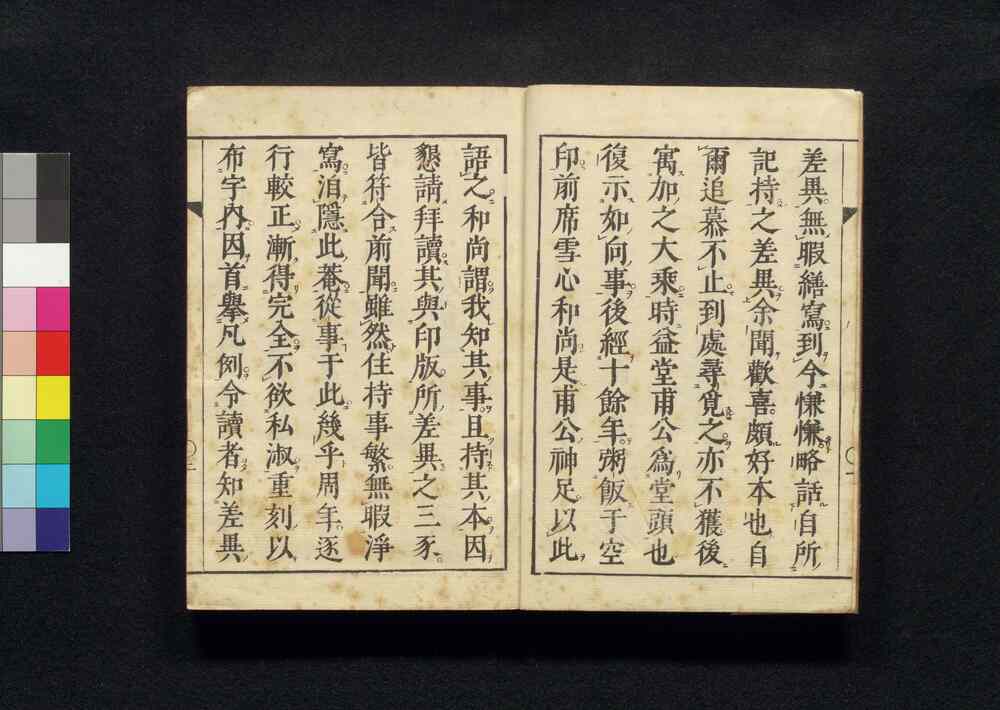 差異無暇繕寫到今慊慊略話自所
記持之差異余聞歡喜頗好本也自
爾追慕不止到處尋覓之亦不獲後
寓加之大乘時益堂甫公爲堂頭也
復示如向事後經十餘年粥飯于空
印前席雪心和尚是甫公神足以此
語之和尚謂我知其事且持其本因
懇請拜讀其與印版所差異之三豕
皆符合前聞雖然住持事繁無暇淨
寫泊隱此菴從事于此幾乎周年逐
行較正漸得完全不欲私淑重刻以
布字內因首擧凡例令讀者知差異